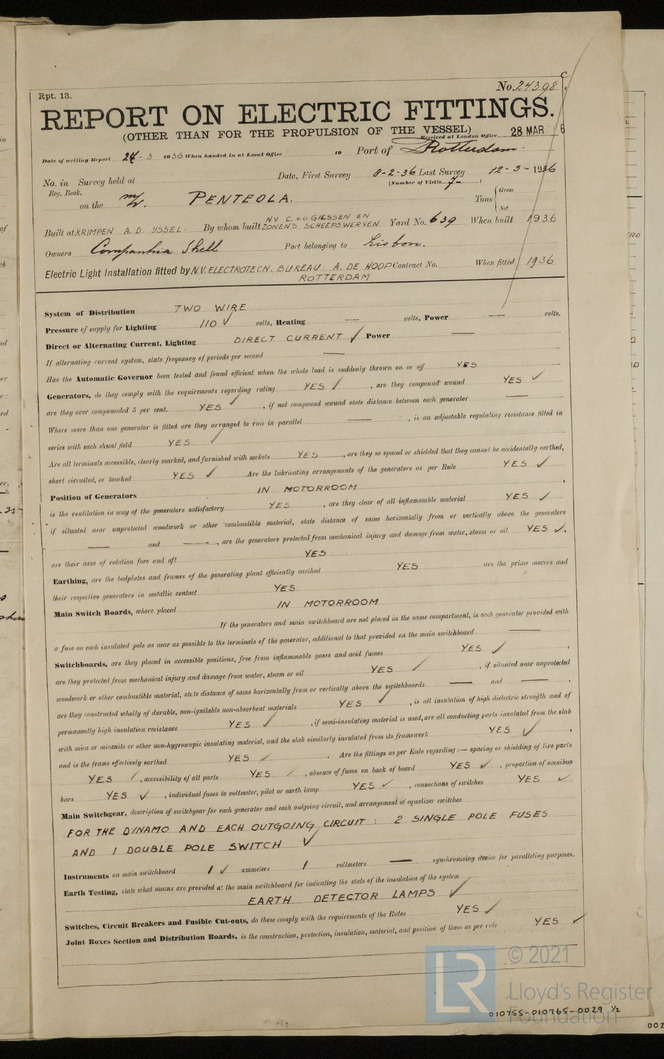 Rpt. 13.
No. 24398
REPORT ON ELECTRIC FITTINGS.
(OTHER THAN FOR THE PROPULSION OF THE VESSEL)
Received at London Office 28 MAR
Date of writing Report 24-3 1936 When handed in at Local Office 19 Port of Rotterdam.
Date, First Survey 8-2-36 Last Survey 12-3-1936
No. in Survey held at (Number of Visits 7
Reg. Book.
on the m/v. PENTEOLA. Tons { Gross Net
Built at KRIMPEN A.D. YSSEL. By whom built N.V. C. v.d GIESSEN EN ZONEN'S SCHEEPSWERVEN Yard No. 639 When built 1936
Owners Companhia Shell Port belonging to Lisbon.
Electric Light Installation fitted by N.V. ELECTROTECN. BUREAU A. DE HOOP ROTTERDAM Contract No. When fitted 1936
System of Distribution TWO WIRE
Pressure of supply for Lighting 110 ✓ volts, Heating — volts, Power — volts.
Direct or Alternating Current, Lighting DIRECT CURRENT ✓ Power —
If alternating current system, state frequency of periods per second —
Has the Automatic Governor been tested and found efficient when the whole load is suddenly thrown on or off YES
Generators, do they comply with the requirements regarding rating YES ✓, are they compound wound YES ✓
are they over compounded 5 per cent. YES ✓, if not compound wound state distance between each generator —
Where more than one generator is fitted are they arranged to run in parallel —, is an adjustable regulating resistance fitted in
series with each shunt field YES ✓
Are all terminals accessible, clearly marked, and furnished with sockets YES, are they so spaced or shielded that they cannot be accidentally earthed,
short circuited, or touched YES ✓ Are the lubricating arrangements of the generators as per Rule YES ✓
Position of Generators IN MOTORROOM
is the ventilation in way of the generators satisfactory YES, are they clear of all inflammable material YES ✓
if situated near unprotected woodwork or other combustible material, state distance of same horizontally from or vertically above the generators
— and —, are the generators protected from mechanical injury and damage from water, steam or oil YES ✓.
are their axes of rotation fore and aft YES
Earthing, are the bedplates and frames of the generating plant efficiently earthed YES are the prime movers and
their respective generators in metallic contact YES
Main Switch Boards, where placed IN MOTORROOM
If the generators and main switchboard are not placed in the same compartment, is each generator provided with
a fuse on each insulated pole as near as possible to the terminals of the generator, additional to that provided on the main switchboard —
Switchboards, are they placed in accessible positions, free from inflammable gases and acid fumes YES ✓.
are they protected from mechanical injury and damage from water, steam or oil YES ✓, if situated near unprotected
woodwork or other combustible material, state distance of same horizontally from or vertically above the switchboards — and —,
are they constructed wholly of durable, non-ignitable non-absorbent materials YES ✓, is all insulation of high dielectric strength and of
permanently high insulation resistance YES ✓, if semi-insulating material is used, are all conducting parts insulated from the slab
with mica or micanite or other non-hygroscopic insulating material, and the slab similarly insulated from its framework YES ✓,
and is the frame effectively earthed YES ✓. Are the fittings as per Rule regarding:— spacing or shielding of live parts
YES ✓, accessibility of all parts YES ✓, absence of fuses on back of board YES ✓, proportion of omnibus
bars YES ✓, individual fuses to voltmeter, pilot or earth lamp YES ✓, connections of switches YES ✓
Main Switchgear, description of switchgear for each generator and each outgoing circuit, and arrangement of equalizer switches
FOR THE DYNAMO AND EACH OUTGOING CIRCUIT : 2 SINGLE POLE FUSES
AND 1 DOUBLE POLE SWITCH ✓
Instruments on main switchboard 1 ✓ ammeters 1 voltmeters — synchronising device for paralleling purposes.
Earth Testing, state what means are provided at the main switchboard for indicating the state of the insulation of the system
EARTH DETECTOR LAMPS ✓
Switches, Circuit Breakers and Fusible Cut-outs, do these comply with the requirements of the Rules YES ✓
Joint Boxes Section and Distribution Boards, is the construction, protection, insulation, material, and position of these as per rule YES ✓
© 2021
LR Lloyd's Register
Foundation
010755-010765-0029 1/2